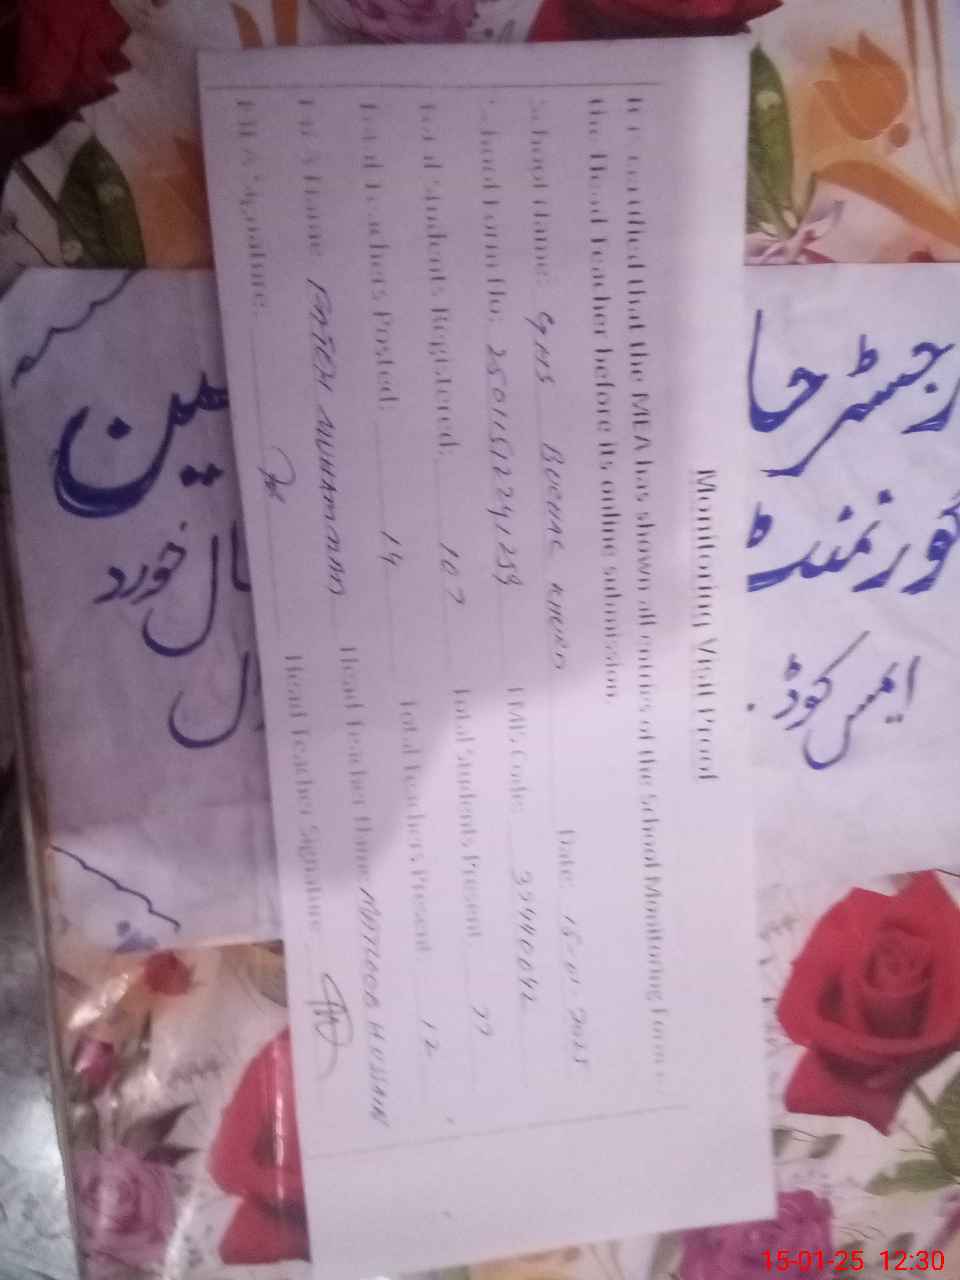 Monitoring Visit Proof
It is certified that the MEA has shown all entries of the School Monitoring Form
the Head Teacher before its online submission.
School Name: GHS BUCHAL KHURD Date: 15-01-2025
School Form No: 25011512241259 EMIS Code:
Total Students Registered: 107 Total Students Present
Total Teachers Posted: 14 Total Teachers Present 12
MEA Name FATEH MUHAMMAD Head Teacher Name MATLOOB HUSSAIN
MEA Signature: Head Teacher Signature
رجسٹر حا
گورنمنٹ
ایمس کوڈ
ال خورد
15-01-25 12:30